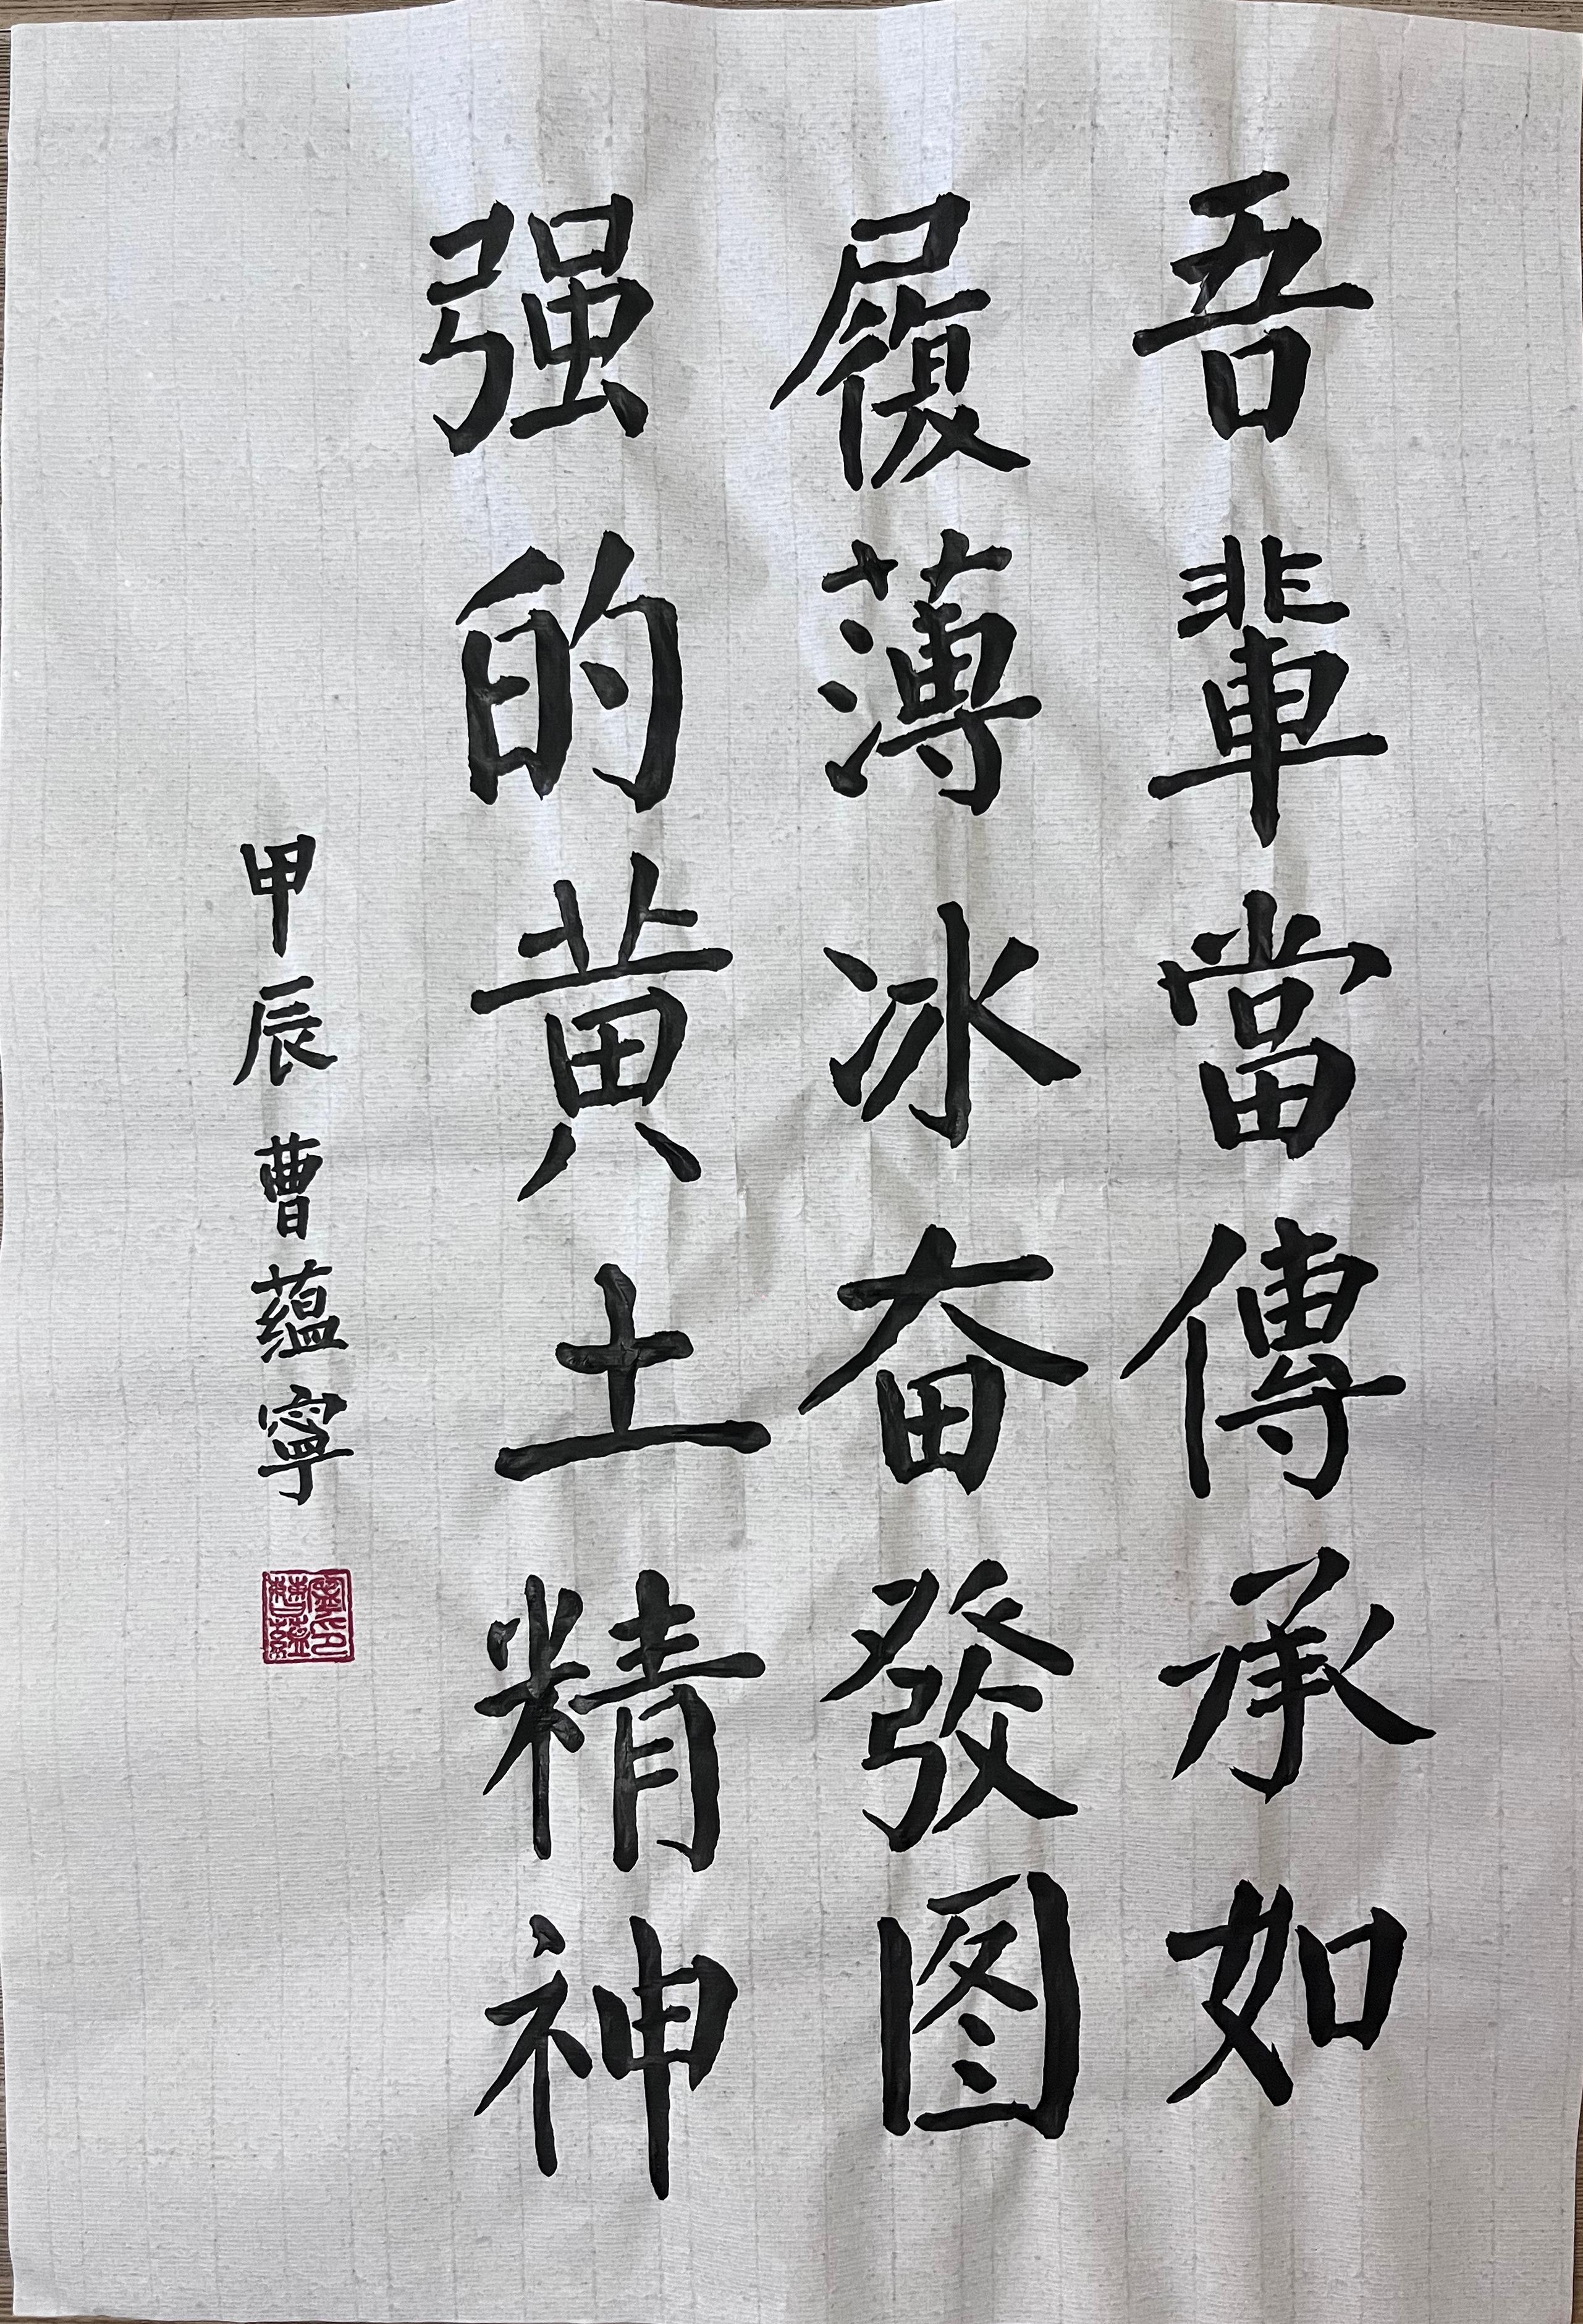 吾輩當傳承如
履薄冰奋發图
强的黄土精神
甲辰曹蕴寧
曹蕴寧印